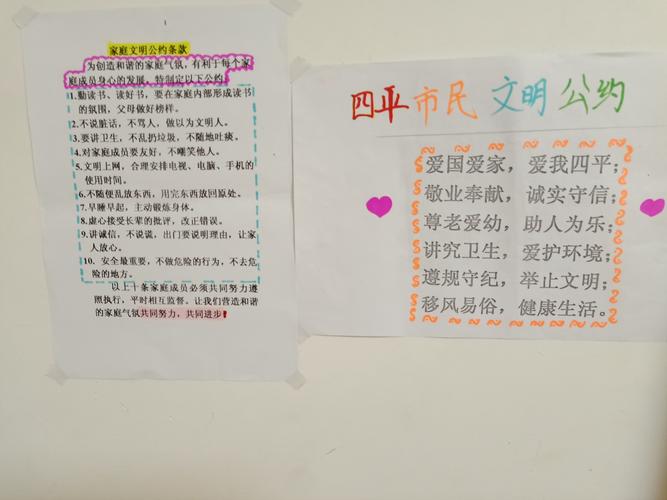 家庭文明公约条款
为创造和谐的家庭气氛，有利于每个家
庭成员身心的发展，特制定以下公约
1.勤读书、读好书，要在家庭内部形成读书
的氛围，父母做好榜样。
2.不说脏话，不骂人，做以为文明人。
3.要讲卫生，不乱扔垃圾，不随地吐痰。
4.对家庭成员要友好，不嘲笑他人。
5.文明上网，合理安排电视、电脑、手机的
使用时间。
6.不随便乱放东西，用完东西放回原处。
7.早睡早起，主动锻炼身体。
8.虚心接受长辈的批评，改正错误。
9.讲诚信，不说谎，出门要说明理由，让家
人放心。
10．安全最重要，不做危险的行为，不去危
险的地方。
以上十条家庭成员必须共同努力遵
照执行，平时相互监督。让我们营造和谐
的家庭气氛共同努力，共同进步！
四平市民文明公约
爱国爱家，爱我四平；
敬业奉献，诚实守信；
尊老爱幼，助人为乐；
讲究卫生，爱护环境；
遵规守纪，举止文明；
移风易俗，健康生活。